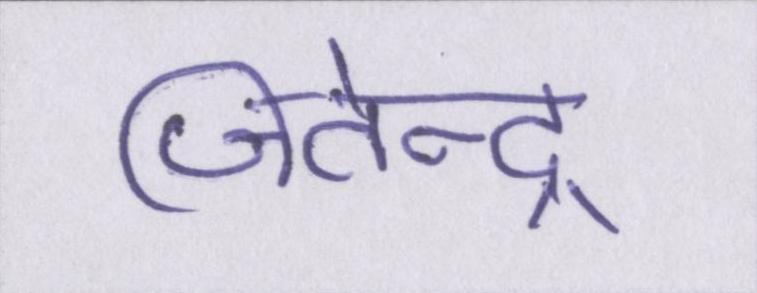 जितेन्द्र